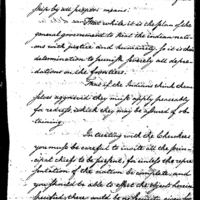 ship by all proper means.
That while it is the plan of the
general government to treat the indian nati-
ons with justice and humanity so it is its
determination to punish severely all depre-
dations on the frontiers.
That if the Indians think them-
selves aggrieved they must apply peaceably
for redress which they may be assured of ob-
taining.
In treating with the Cherokees
you must be careful to invite all the prin-
cipal chiefs to be present, for unless the repre-
sentation of the nation be complete, and
you should be able to effect the objects herein
specified, there would be